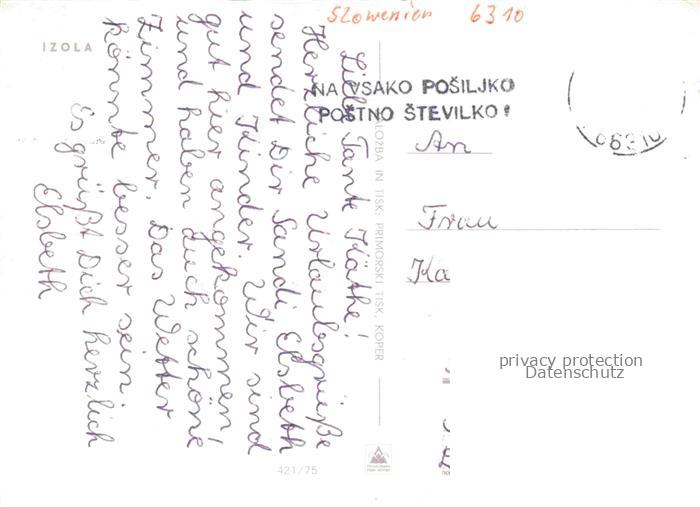 Slowenien 6310
IZOLA
NA VSAKO POŠILJKO
POŠTNO ŠTEVILKO!
Liebe Tante Käthe!
Herzliche Urlaubsgrüße
sendet Dir Sandi Elsbeth
und Kinder. Wir sind
gut hier angekommen!
und haben auch schöne
Zimmer. Das Wetter
könnte besser sein.
Es grüßt Dich herzlich
Elsbeth
ZALOŽBA IN TISK: PRIMORSKI TISK, KOPER
An
Frau
Ka
privacy protection
Datenschutz
421/75